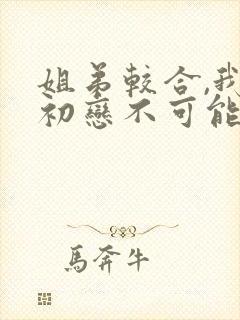 姐弟較合,我
初戀不可能
馬奔牛